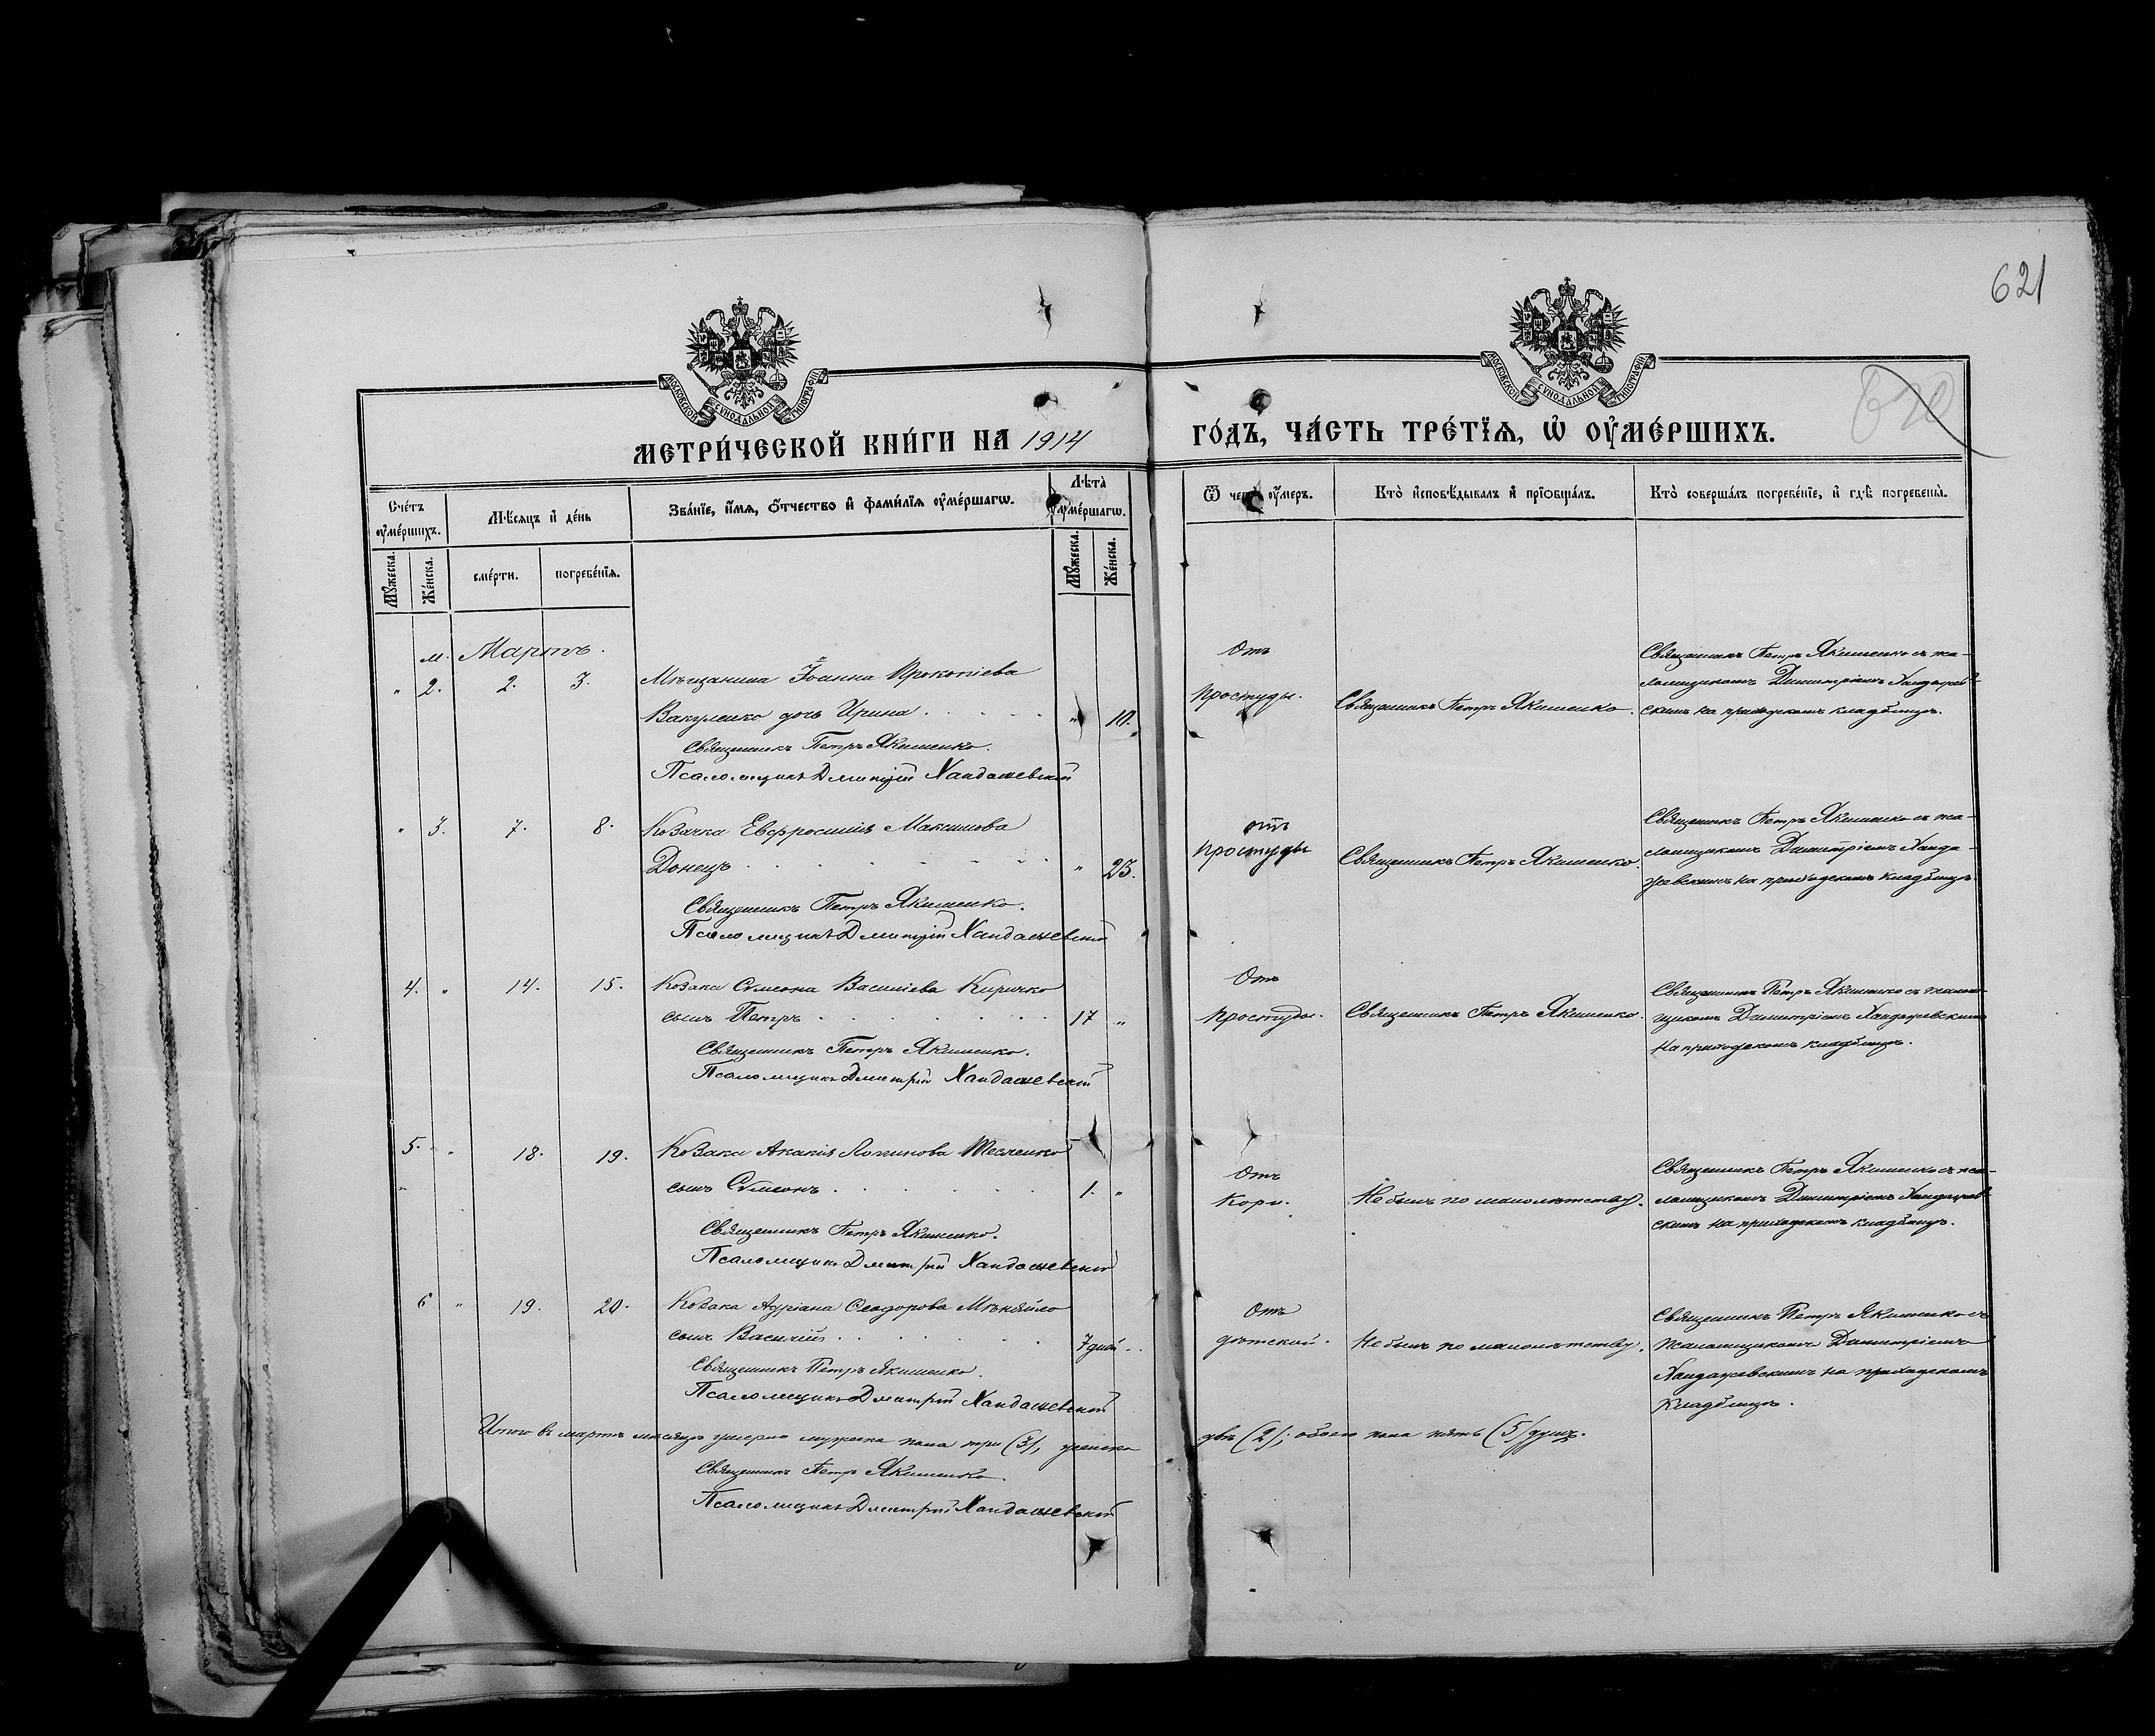 621
620
МОСКОВСКОЙ СѴНОДАЛЬНОЙ ТИПОГРАФІИ
МОСКОВСКОЙ СѴНОДАЛЬНОЙ ТИПОГРАФІИ
МЕТРИ́ЧЕСКОЙ КНИ́ГИ НА 1914 ГО́ДЪ, ЧА́СТЬ ТРЕ́ТЇѦ, Ѡ҆ ОУ҆МЕ́РШИХЪ.
Сче́тъ оу҆ме́ршихъ.
Мѣ́сѧцъ и҆ де́нь
Зва́нїе, и҆́мѧ, ѻ҆́тчество и҆ фами́лїѧ оу҆ме́ршагѡ.
Лѣ́та оу҆ме́ршагѡ.
Ѿ чегѡ̀ оу҆́меръ.
Кто̀ и҆сповѣ́дывалъ и҆ прїѻбща́лъ.
Кто̀ соверша́лъ погребе́нїе, и҆ гдѣ̀ погребены̀.
Мꙋ́жеска.
Же́нска.
сме́рти.
погребе́нїѧ.
Мꙋ́жеска.
Же́нска.
м. Мартъ.
" 2. 2. 3. Мѣщанина Іоанна Прокопіева
Вакуленко дочь Ирина . . . . . " 10.
Священникъ Петръ Якименко.
Псаломщикъ Дмитрій Хандажевскій
Отъ
простуды.
Священникъ Петръ Якименко.
Священникъ Петръ Якименко съ пса-
ломщикомъ Димитріемъ Хандажев-
скимъ на приходскомъ кладбищѣ.
" 3. 7. 8. Козачка Евфросинія Максимова
Донецъ . . . . . . . " 23.
Священникъ Петръ Якименко.
Псаломщикъ Дмитрій Хандажевскій
отъ
простуды
Священникъ Петръ Якименко.
Священникъ Петръ Якименко съ пса-
ломщикомъ Димитріемъ Ханда-
жевскимъ на приходскомъ кладбищѣ.
4. " 14. 15. Козака Сѵмеона Василіева Киричко
сынъ Петръ . . . . . . . 17 "
Священникъ Петръ Якименко.
Псаломщикъ Дмитрій Хандажевскій
Отъ
простуды.
Священникъ Петръ Якименко.
Священникъ Петръ Якименко съ псалом-
щикомъ Димитріемъ Хандажевскимъ
на приходскомъ кладбищѣ.
5. " 18. 19. Козака Акакія Логинова Тесленко
сынъ Сѵмеонъ . . . . . . 1. "
Священникъ Петръ Якименко.
Псаломщикъ Дмитрій Хандажевскій
Отъ
кори.
Не былъ по малолѣтству.
Священникъ Петръ Якименко съ пса-
ломщикомъ Димитріемъ Хандажев-
скимъ на приходскомъ кладбищѣ.
6 " 19. 20. Козака Адріана Ѳеодорова Мѣняйло
сынъ Василій . . . . . . 7 дней "
Священникъ Петръ Якименко.
Псаломщикъ Дмитрій Хандажевскій
Отъ
дѣтской.
Не былъ по малолѣтству.
Священникъ Петръ Якименко съ
псаломщикомъ Димитріемъ
Хандажевскимъ на приходскомъ
кладбищѣ.
Итого въ мартѣ мѣсяцѣ умерло мужеска пола три (3), женска двѣ (2); обоего пола пять (5) душъ.
Священникъ Петръ Якименко
Псаломщикъ Дмитрій Хандажевскій